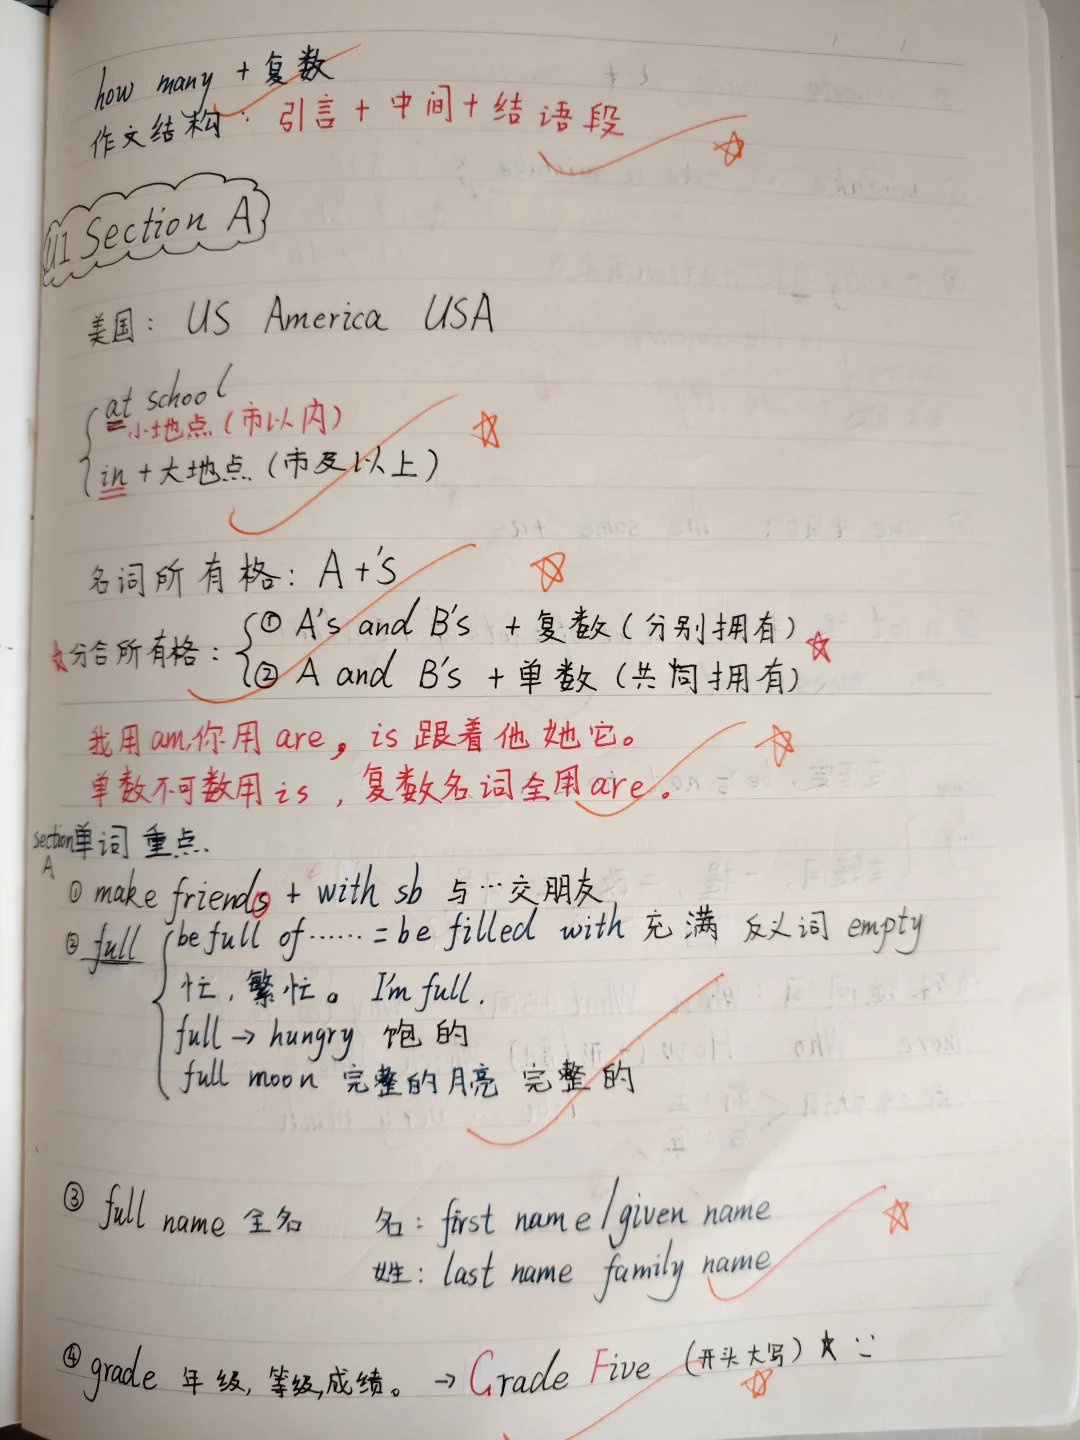 how many + 复数
作文结构: 引言 + 中间 + 结语段
U1 Section A
美国: US America USA
at school
小地点(市以内)
in + 大地点(市及以上)
名词所有格: A+'s
分合所有格: ① A's and B's + 复数(分别拥有)
② A and B's + 单数(共同拥有)
我用am,你用are, is跟着他她它。
单数不可数用is, 复数名词全用are.
section A 单词重点.
① make friends + with sb 与…交朋友
② full be full of …… = be filled with 充满 反义词 empty
忙, 繁忙。 I'm full.
full → hungry 饱的
full moon 完整的月亮 完整的
③ full name 全名 名: first name / given name
姓: last name family name
④ grade 年级, 等级, 成绩。 → Grade Five (开头大写)